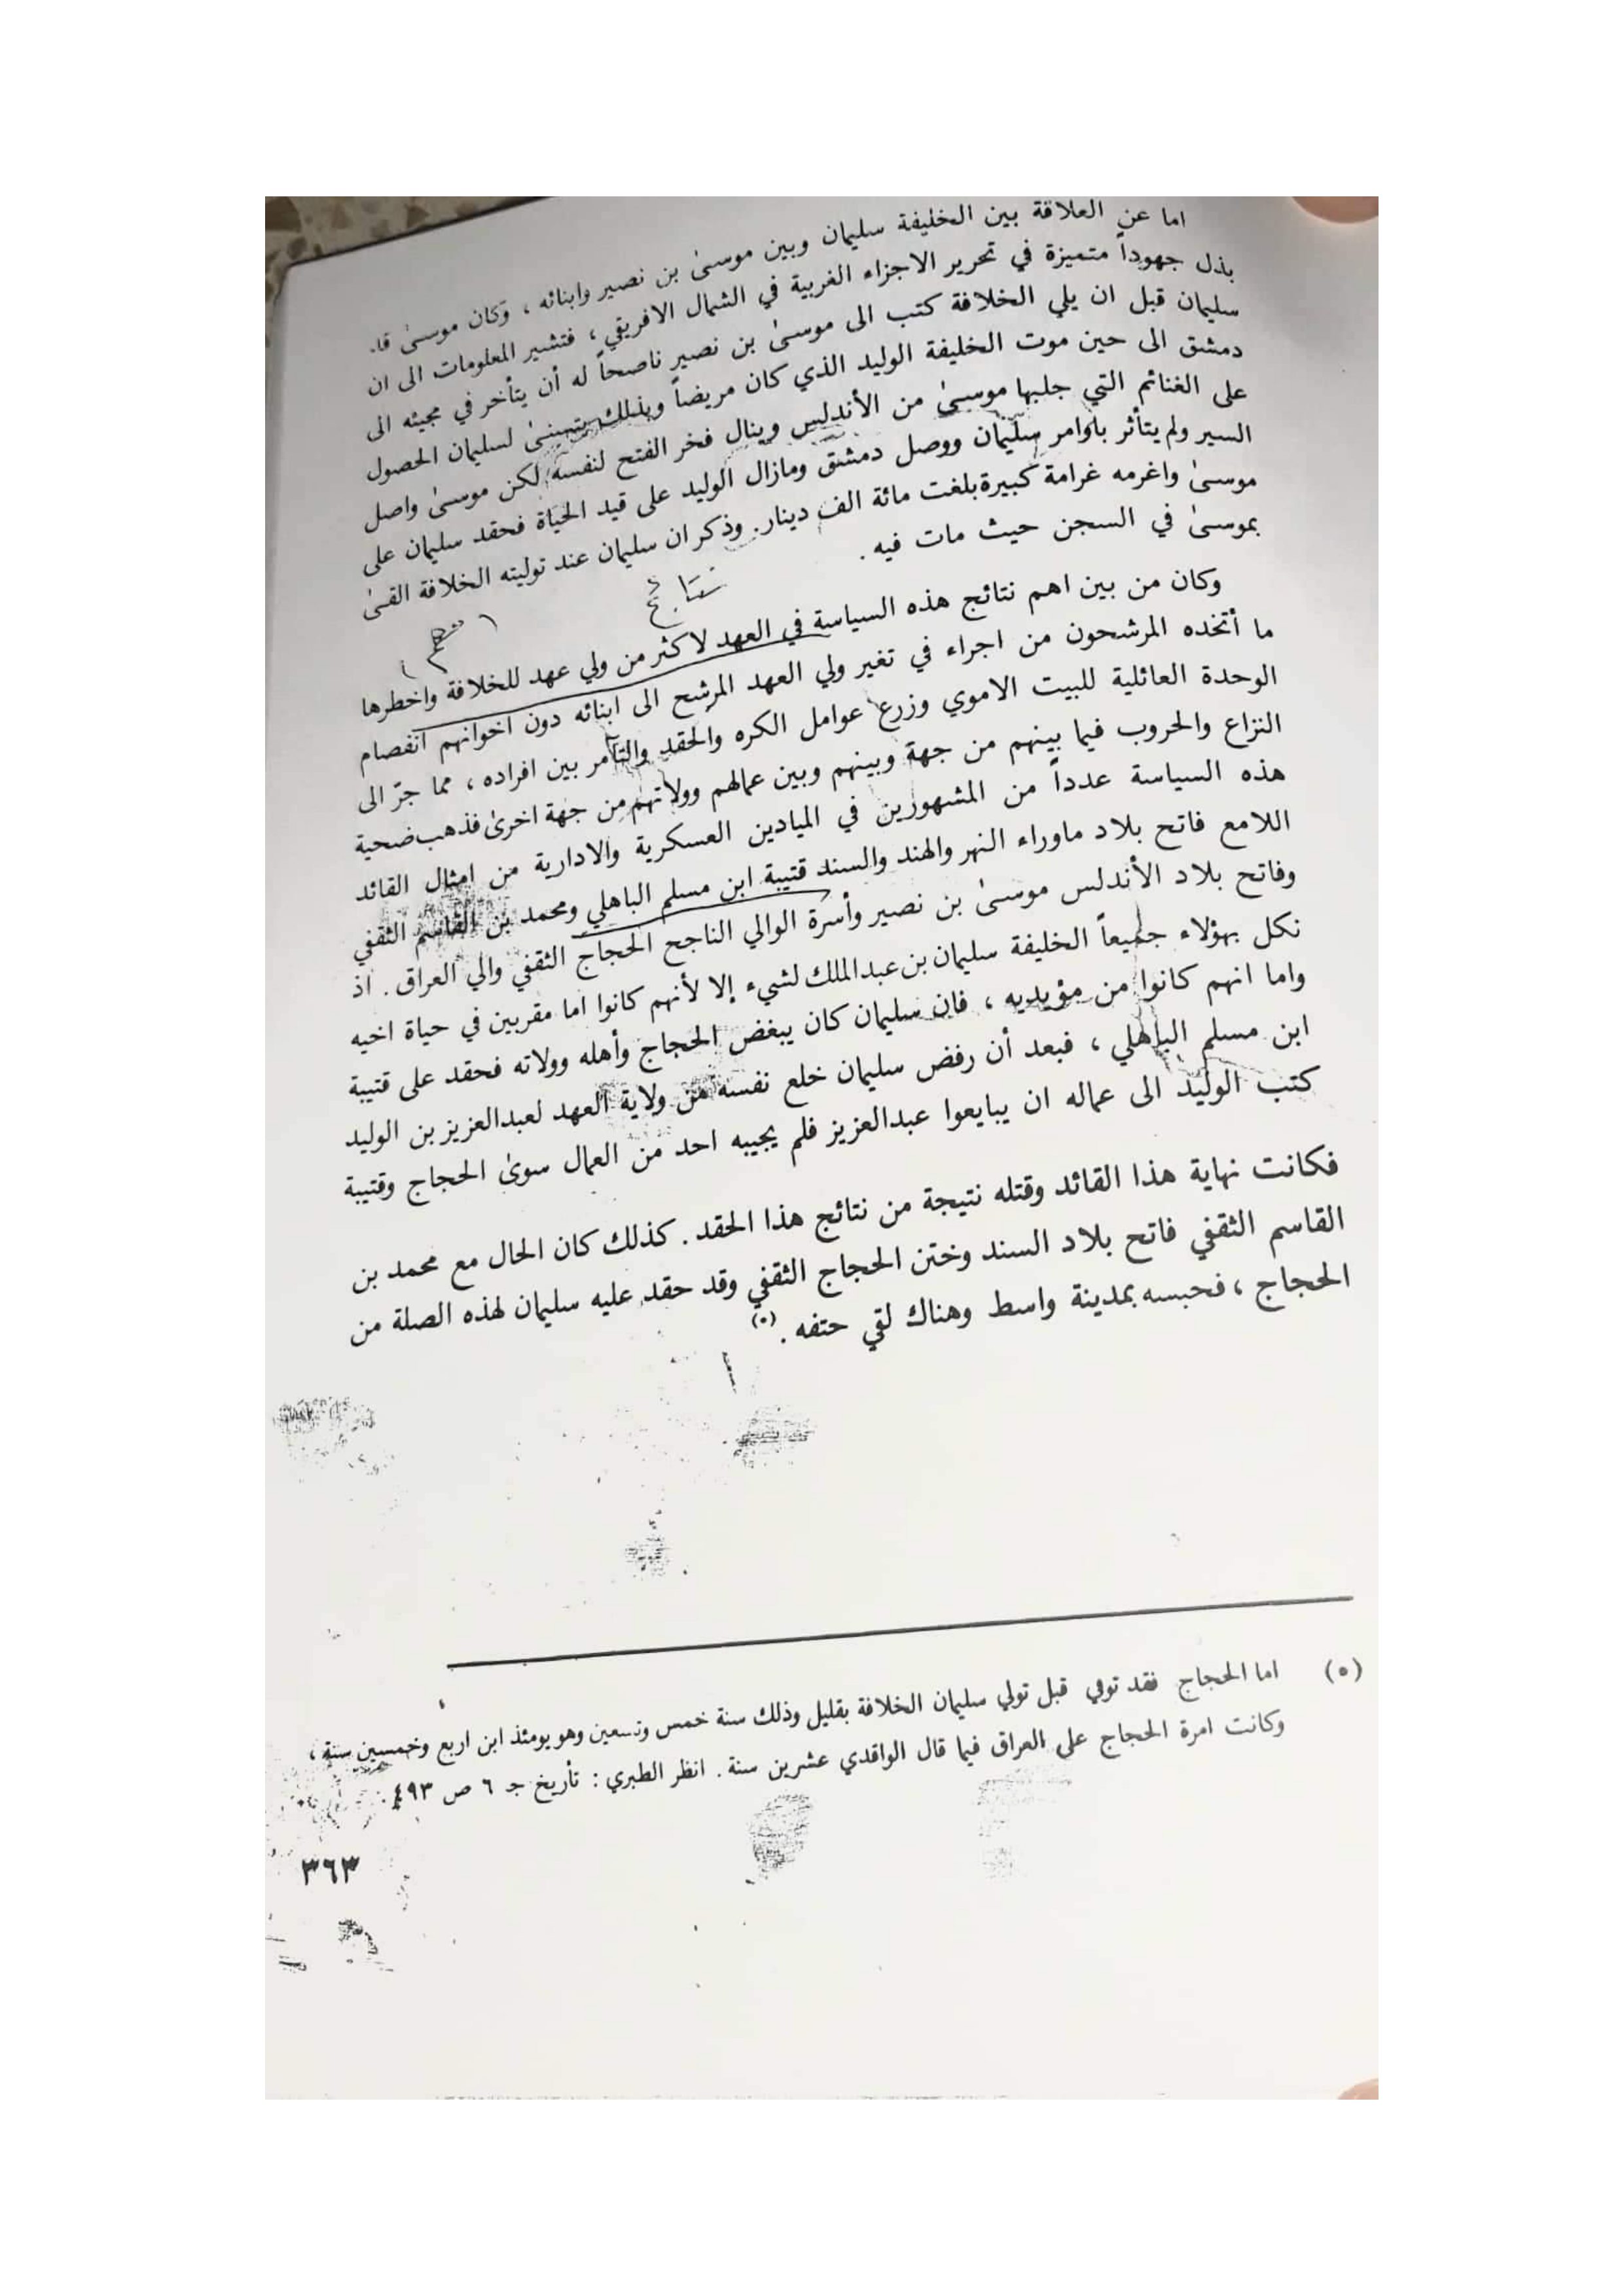 اما عن العلاقة بين الخليفة سليمان وبين موسىٰ بن نصير وابنائه ، وكان موسىٰ قد
بذل جهوداً متميزة في تحرير الاجزاء الغربية في الشمال الافريقي ، فتشير المعلومات الى ان
سليمان قبل ان يلي الخلافة كتب الى موسىٰ بن نصير ناصحاً له أن يتأخر في مجيئه الى
دمشق الى حين موت الخليفة الوليد الذي كان مريضاً وبذلك يتسنىٰ لسليمان الحصول
على الغنائم التي جلبها موسىٰ من الأندلس وينال فخر الفتح لنفسه لكن موسىٰ واصل
السير ولم يتأثر باوامر سليمان ووصل دمشق ومازال الوليد على قيد الحياة فحقد سليمان على
موسىٰ واغرمه غرامة كبيرة بلغت مائة الف دينار . وذكر ان سليمان عند توليته الخلافة القىٰ
بموسىٰ في السجن حيث مات فيه .
نتائج
وكان من بين اهم نتائج هذه السياسة في العهد لاكثر من ولي عهد للخلافة واخطرها
ما أتخذه المرشحون من اجراء في تغير ولي العهد المرشح الى ابنائه دون اخوانهم انفصام
الوحدة العائلية للبيت الاموي وزرع عوامل الكره والحقد والتآمر بين افراده ، مما جرّ الى
النزاع والحروب فيما بينهم من جهة وبينهم وبين عمالهم وولاتهم من جهة اخرىٰ فذهب ضحية
هذه السياسة عدداً من المشهورين في الميادين العسكرية والادارية من امثال القائد
اللامع فاتح بلاد ماوراء النهر والهند والسند قتيبة ابن مسلم الباهلي ومحمد بن القاسم الثقفي
وفاتح بلاد الأندلس موسىٰ بن نصير وأسرة الوالي الناجح الحجاج الثقفي والي العراق . اذ
نكل بهؤلاء جميعاً الخليفة سليمان بن عبدالملك لشيء إلا لأنهم كانوا اما مقربين في حياة اخيه
واما انهم كانوا من مؤيديه ، فان سليمان كان يبغض الحجاج وأهله وولاته فحقد على قتيبة
ابن مسلم الباهلي ، فبعد أن رفض سليمان خلع نفسه من ولاية العهد لعبدالعزيز بن الوليد
كتب الوليد الى عماله ان يبايعوا عبدالعزيز فلم يجيبه احد من العمال سوىٰ الحجاج وقتيبة
فكانت نهاية هذا القائد وقتله نتيجة من نتائج هذا الحقد . كذلك كان الحال مع محمد بن
القاسم الثقفي فاتح بلاد السند وختن الحجاج الثقفي وقد حقد عليه سليمان لهذه الصلة من
الحجاج ، فحبسه بمدينة واسط وهناك لقي حتفه . (٥)
(٥) اما الحجاج فقد توفي قبل تولي سليمان الخلافة بقليل وذلك سنة خمس وتسعين وهو يومئذ ابن اربع وخمسين سنة ،
وكانت امرة الحجاج على العراق فيما قال الواقدي عشرين سنة . انظر الطبري : تأريخ جـ ٦ ص ٤٩٣ .
٣٦٣